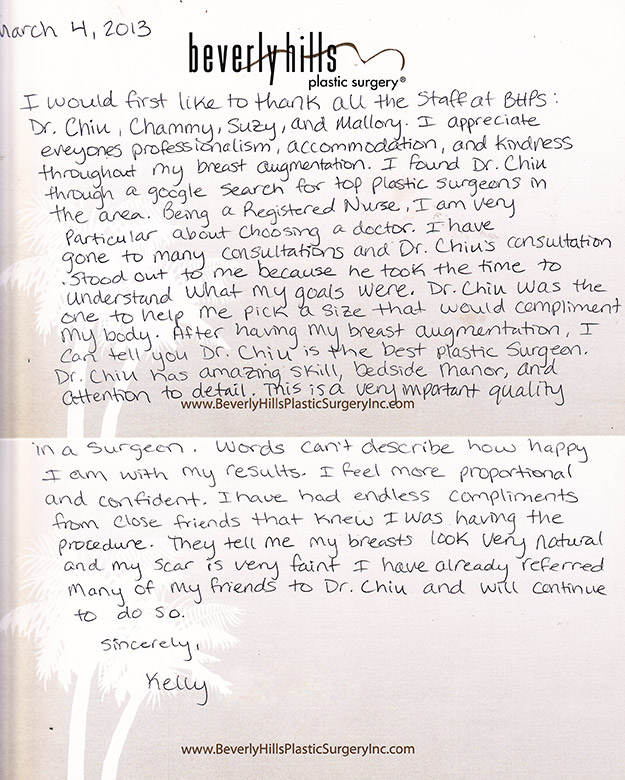 March 4, 2013
beverlyhills
plastic surgery®
I would first like to thank all the Staff at BHPS:
Dr. Chiu, Chammy, Suzy, and Mallory. I appreciate
eveyones professionalism, accommodation, and kindness
throughout my breast augmentation. I found Dr. Chiu
through a google search for top Plastic surgeons in
the area. Being a Registered Nurse, I am very
Particular about choosing a doctor. I have
gone to many consultations and Dr. Chiu's consultation
Stood out to me because he took the time to
understand what my goals were. Dr. Chiu was the
one to help me pick a size that would compliment
my body. After having my breast augmentation, I
can tell you Dr. Chiu is the best plastic Surgeon.
Dr. Chiu has amazing skill, bedside manor, and
attention to detail. This is a very important quality
www.BeverlyHillsPlasticSurgeryInc.com
in a Surgeon. Words can't describe how happy
I am with my results. I feel more proportional
and confident. I have had endless compliments
from close friends that knew I was having the
procedure. They tell me my breasts look very natural
and my scar is very faint I have already referred
many of my friends to Dr. Chiu and will continue
to do so.
Sincerely,
Kelly
www.BeverlyHillsPlasticSurgeryInc.com